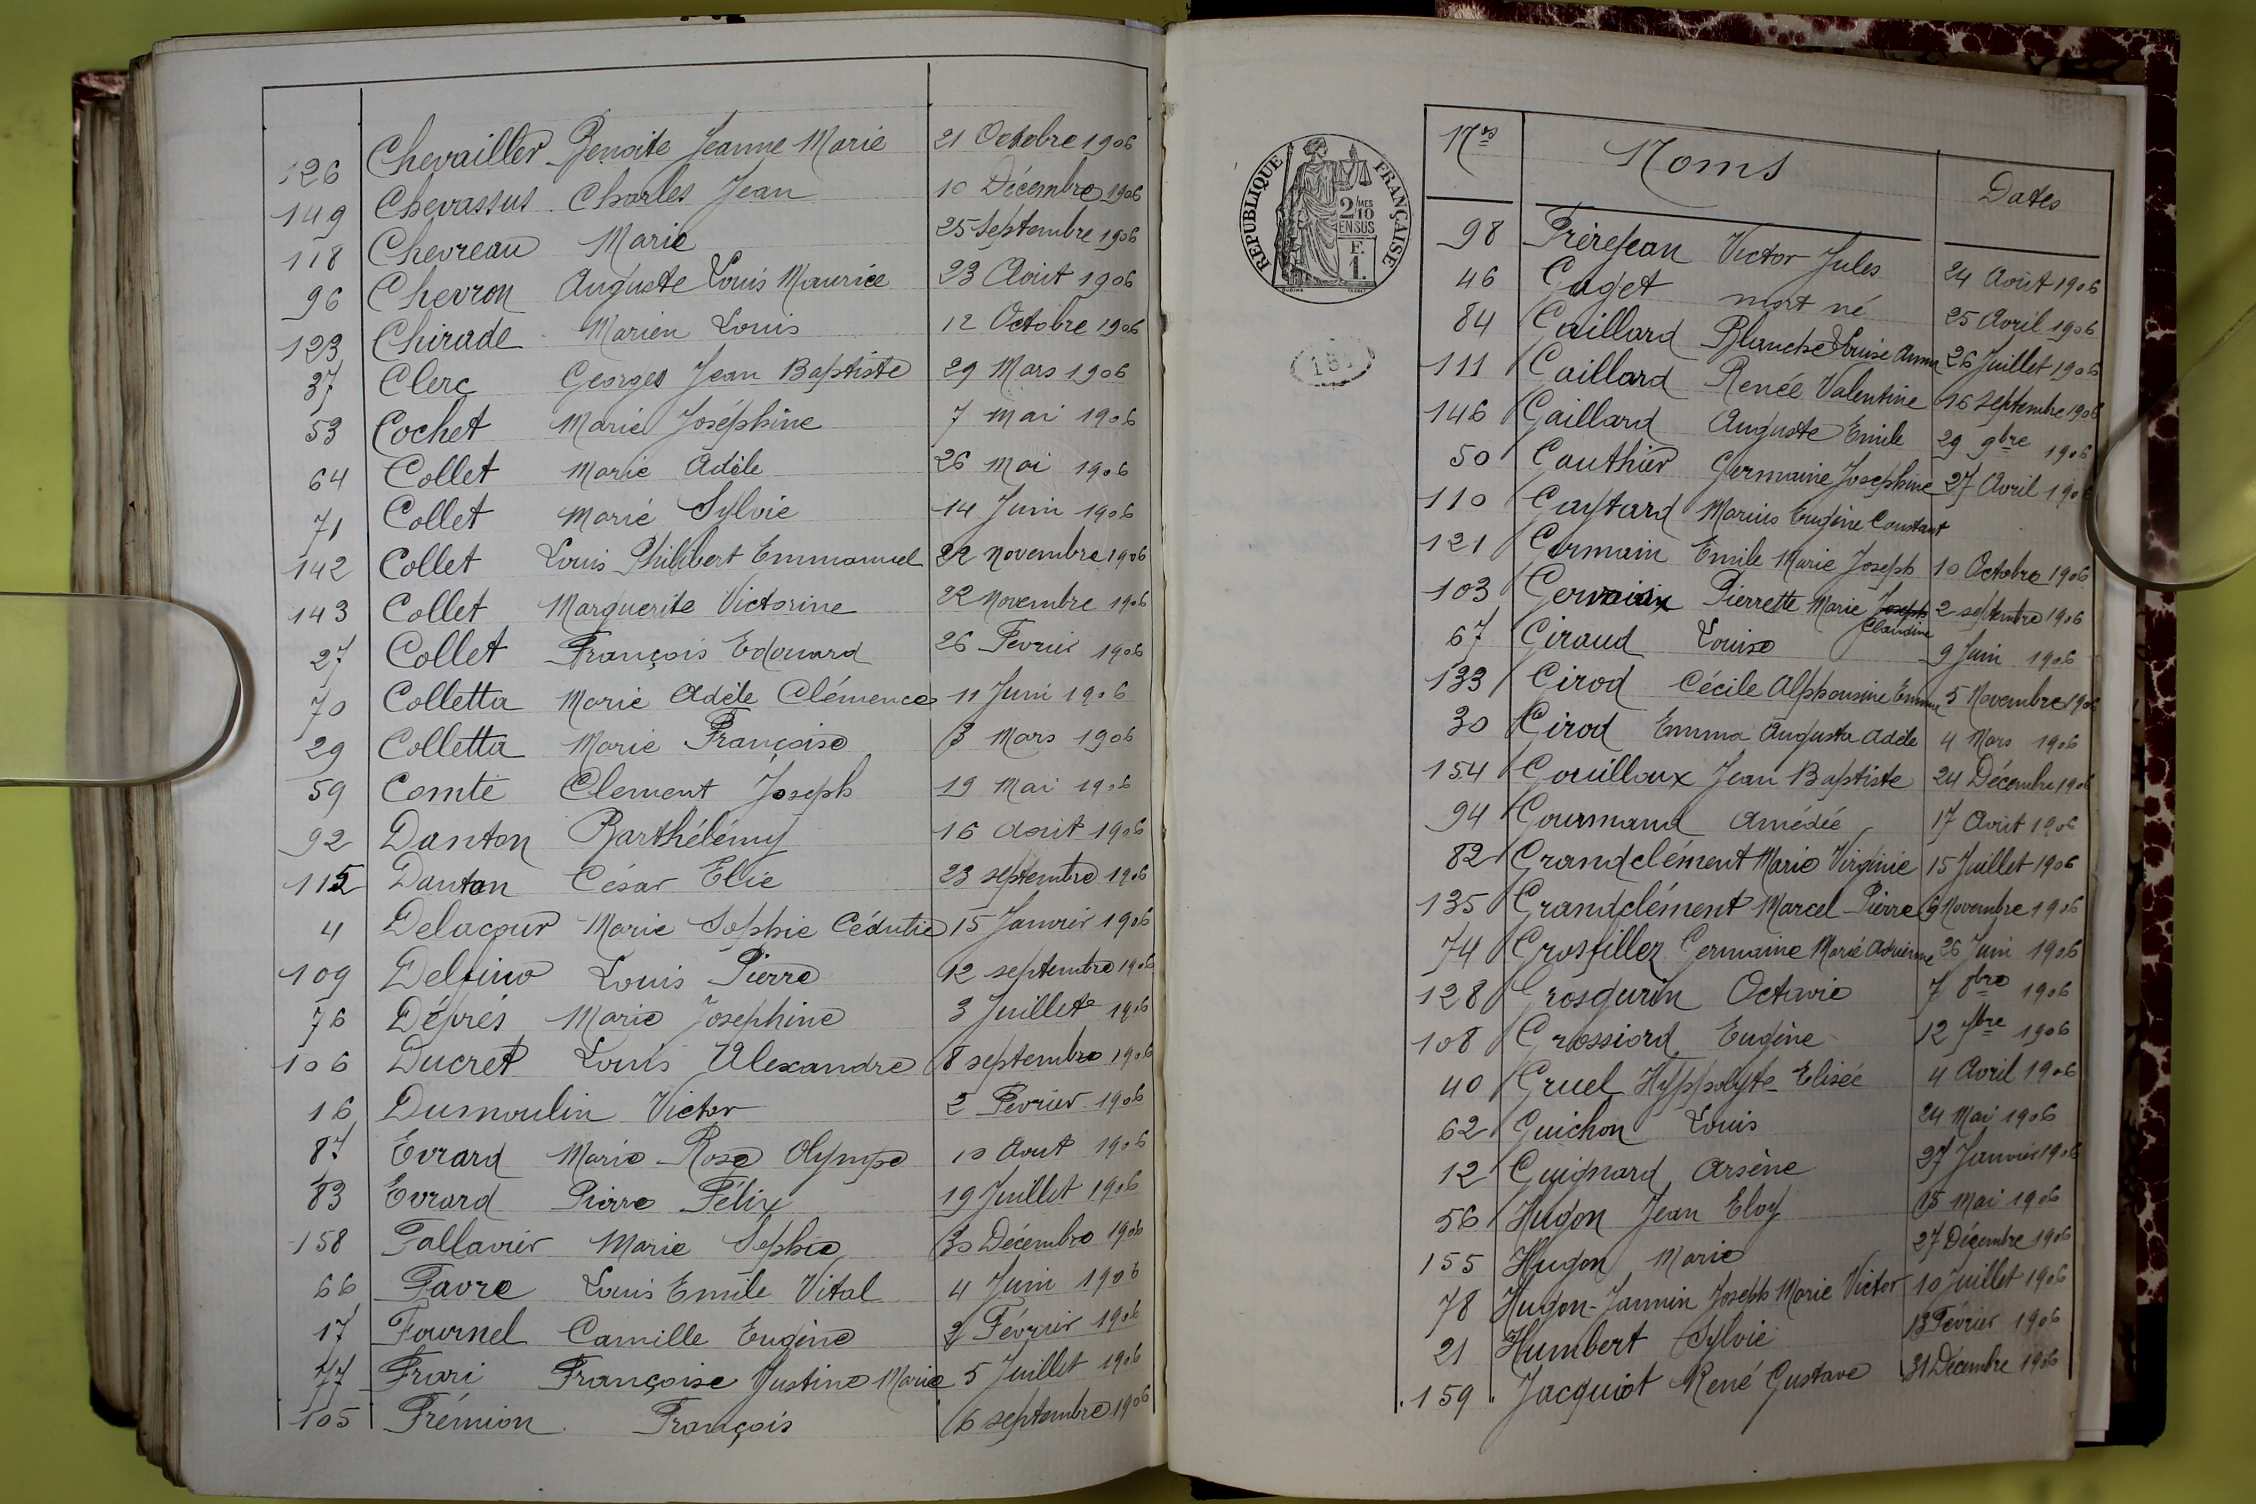 126 Chevailler Benoite Jeanne Marie 21 Octobre 1906
149 Chevassus Charles Jean 10 Décembre 1906
118 Chevreau Marie 25 septembre 1906
96 Chevron Auguste Louis Maurice 23 Août 1906
123 Chirade Marien Louis 12 Octobre 1906
37 Clerc Georges Jean Baptiste 29 Mars 1906
53 Cochet Marie Joséphine 7 Mai 1906
64 Collet Marie Adèle 26 Mai 1906
71 Collet Marie Sylvie 14 Juin 1906
142 Collet Louis Philibert Emmanuel 22 Novembre 1906
143 Collet Marguerite Victorine 22 Novembre 1906
27 Collet François Edouard 26 Février 1906
70 Colletta Marie Adèle Clémence 11 Juin 1906
29 Colletta Marie Françoise 3 Mars 1906
59 Comte Clement Joseph 19 Mai 1906
92 Danton Barthélémy 16 Août 1906
115 Danton César Elie 23 septembre 1906
4 Delacour Marie Sophie 15 Janvier 1906
109 Delfino Louis Pierre 12 septembre 1906
76 Déprés Marie Josephine 3 Juillet 1906
106 Ducret Louis Alexandre 8 septembre 1906
16 Dumoulin Victor 2 Février 1906
87 Evrard Marie Rose Olympe 10 Aout 1906
83 Evrard Pierre Félix 19 Juillet 1906
158 Fallavier Marie Sophie 30 Décembre 1906
66 Favre Louis Emile Vital 4 Juin 1906
17 Fournel Camille Eugène 2 Février 1906
77 Frari Françoise Justine Marie 5 Juillet 1906
105 Frémion François 6 septembre 1906
RÉPUBLIQUE FRANÇAISE
2/10 MES
EN SUS
F.
1.
Nos Noms Dates
98 Frèrejean Victor Jules 24 Août 1906
46 Gaget mort né 25 Avril 1906
84 Gaillard Blanche Louise Anna 26 Juillet 1906
111 Gaillard Renée Valentine 16 septembre 1906
146 Gaillard Auguste Emile 29 9bre 1906
50 Gauthier Germaine Josephine 27 Avril 1906
110 Gaytard Marius Eugène Constant
121 Germain Emile Marie Joseph 10 Octobre 1906
103 Gervaix Pierrette Marie Joseph 2 septembre 1906
Claudine
67 Giraud Louise 9 Juin 1906
133 Girod Cécile Alphonsine Emma 5 Novembre 1906
30 Girod Emma Augusta Adèle 4 Mars 1906
154 Gouilloux Jean Baptiste 24 Décembre 1906
94 Gourmand Amédée 17 Août 1906
82 Grandclément Marie Virginie 15 Juillet 1906
135 Grandclément Marcel Pierre 9 Novembre 1906
74 Grosfillez Germaine Marie Adrienne 26 Juin 1906
128 Grosgurin Octavie 7 8bre 1906
108 Grossiord Eugène 12 7bre 1906
40 Gruel Hyppolyte Elisée 4 Avril 1906
62 Guichon Louis 24 Mai 1906
12 Guignard Arsène 27 Janvier 1906
56 Hugon Jean Eloy 15 Mai 1906
155 Hugon Marie 27 Décembre 1906
78 Hugon-Jannin Joseph Marie Victor 10 Juillet 1906
21 Humbert Sylvie 13 Février 1906
159 Jacquiot René Gustave 31 Décembre 1906